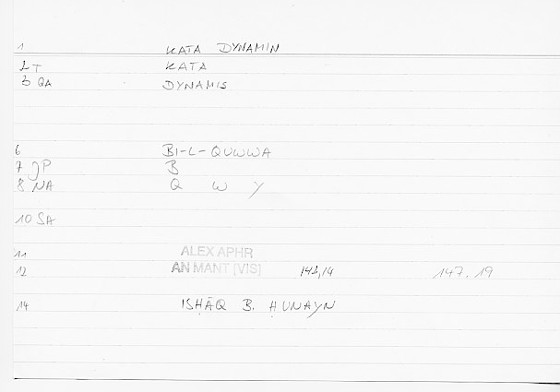 1 KATA DYNAMIN
2 T KATA
3 QA DYNAMIS
6 BI-L-QUWWA
7 JP B
8 NA Q W Y
10 SA
11 ALEX APHR
12 AN MANT [VIS] 141,14 147.19
14 ISḤĀQ B. ḤUNAYN